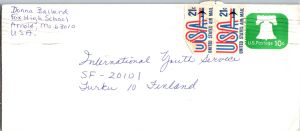 Donna Ballard
Fox High School
Arnold, Mo. 63010
U.S.A.
21¢ USA UNITED STATES AIR MAIL
21¢ USA UNITED STATES AIR MAIL
U.S. Postage 10¢
International Youth Service
SF-20101
Turku 10 Finland